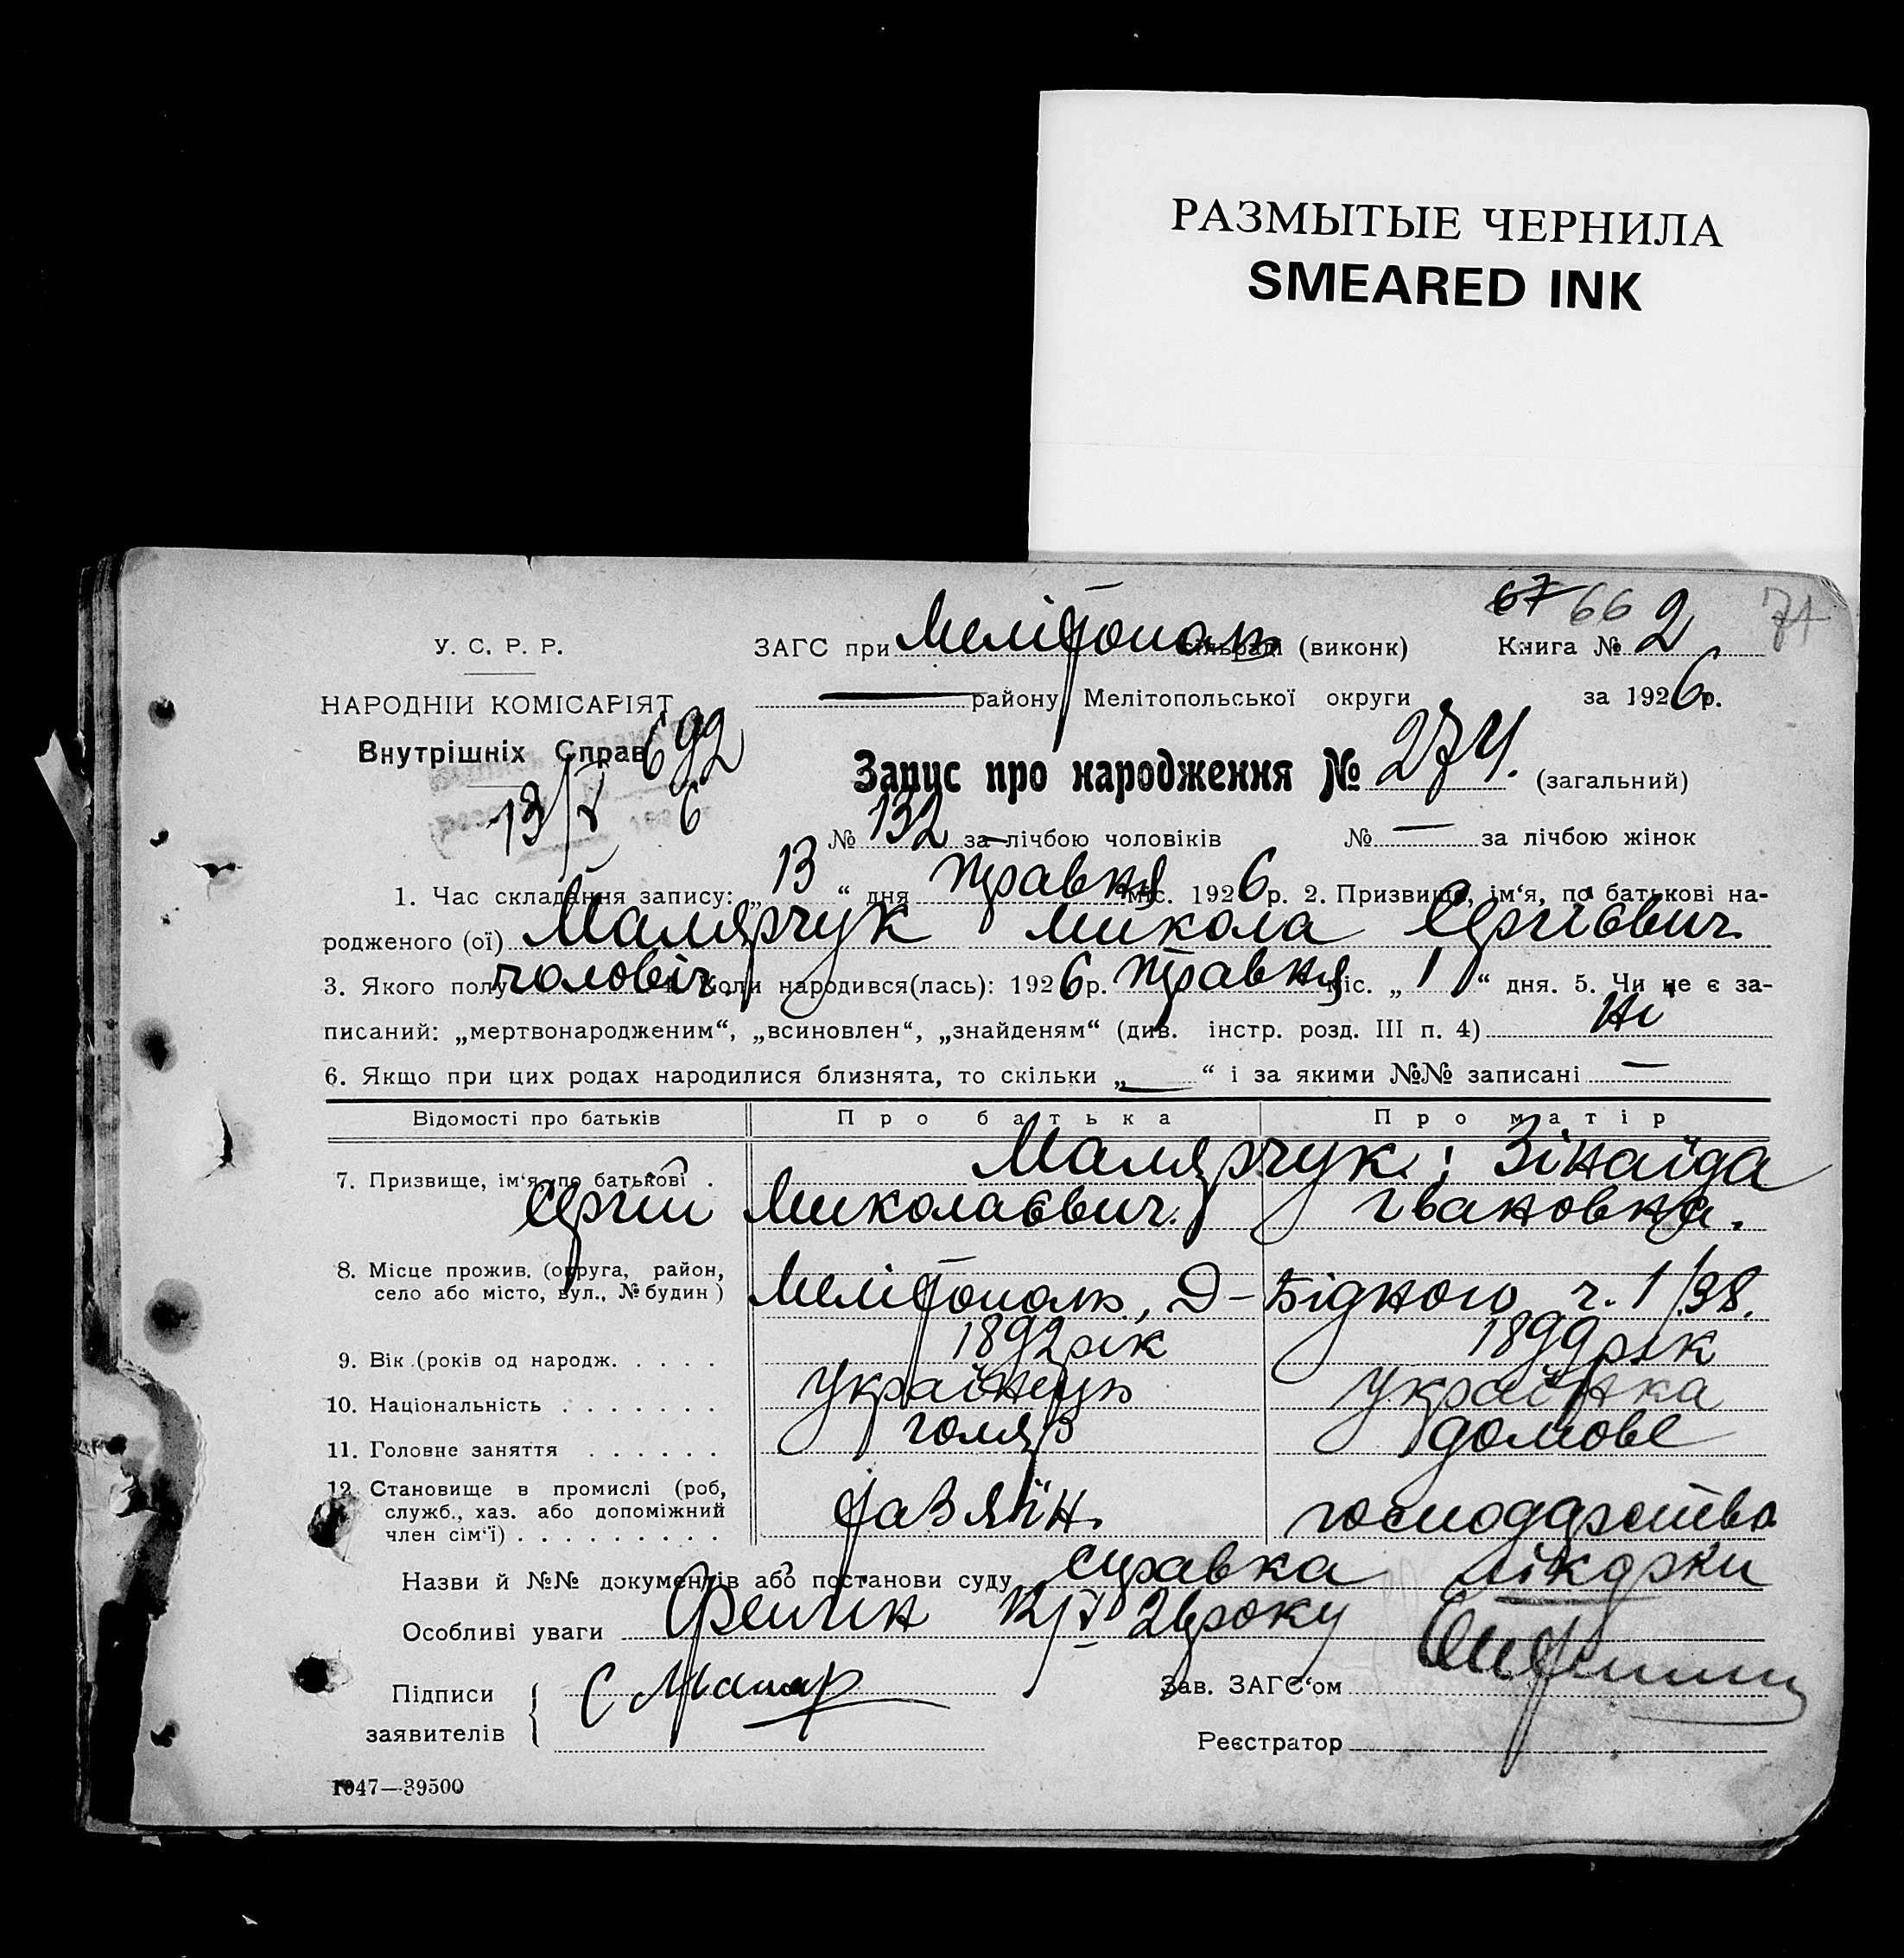 РАЗМЫТЫЕ ЧЕРНИЛА
SMEARED INK
67 66 71
У. С. Р. Р. ЗАГС при Мелітополь сільраді (виконк) Книга № 2
НАРОДНІЙ КОМІСАРІЯТ району Мелітопольської округи за 1926 р.
Внутрішніх Справ 692
Запис про народження № 274. (загальний)
13/V 6
№ 132 за лічбою чоловіків № — за лічбою жінок
1. Час складання запису: „13“ дня травня міс. 1926 р. 2. Призвище, ім‘я, по батькові на-
родженого (ої) Малярчук Микола Сергієвич
3. Якого полу чоловіч. 4. Коли народився(лась): 1926 р. травня міс. „1“ дня. 5. Чи не є за-
писаний: „мертвонародженим“, „всиновлен“, „знайденям“ (див. інстр. розд. III п. 4) Ні
6. Якщо при цих родах народилися близнята, то скільки „—“ і за якими №№ записані —
Відомості про батьків Про батька Про матір
7. Призвище, ім‘я, по батькові . Малярчук: Зінаїда
Сергій Миколаєвич. Івановна.
8. Місце прожив. (округа, район,
село або місто, вул., № будин) Мелітополь, Д-Бідного ч. 1/38.
9. Вік (років од народж. . . . . 1892 рік 1899 рік
10. Національність . . . . . . . Українець Українка
11. Головне заняття . . . . . . голяр домове
12. Становище в промислі (роб,
служб., хаз. або допоміжний господарство
член сім‘ї) . . . . . . . . .
Назви й №№ документів або постанови суду справка лікарки
Особливі уваги 26 року
Підписи Зав. ЗАГС‘ом
заявителів
Реєстратор
1047—39500